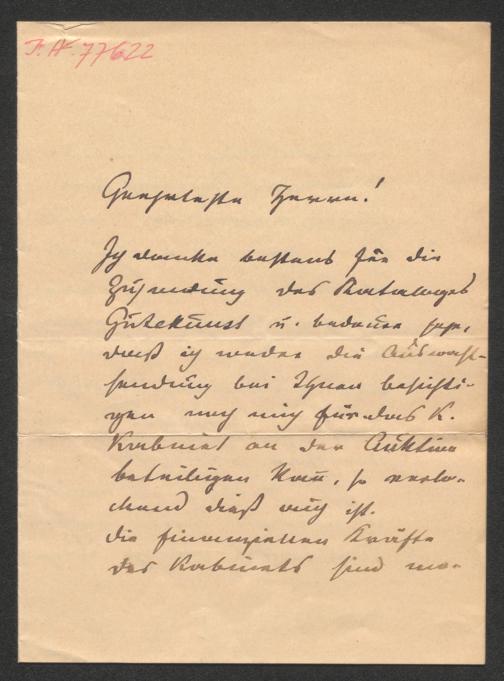 J. N. 77622
Geehrteste Herren!
Ich danke bestens für die
Zusendung des Kataloges
Gutekunst u. bedaure sehr,
daß ich weder die Auswahl-
sendung bei Ihnen besichti-
gen noch mich für das K.
Kabinet an der Auktion
beteiligen kann, so verlo-
ckend dieß auch ist.
Die finanziellen Kräfte
des Kabinets sind mo-